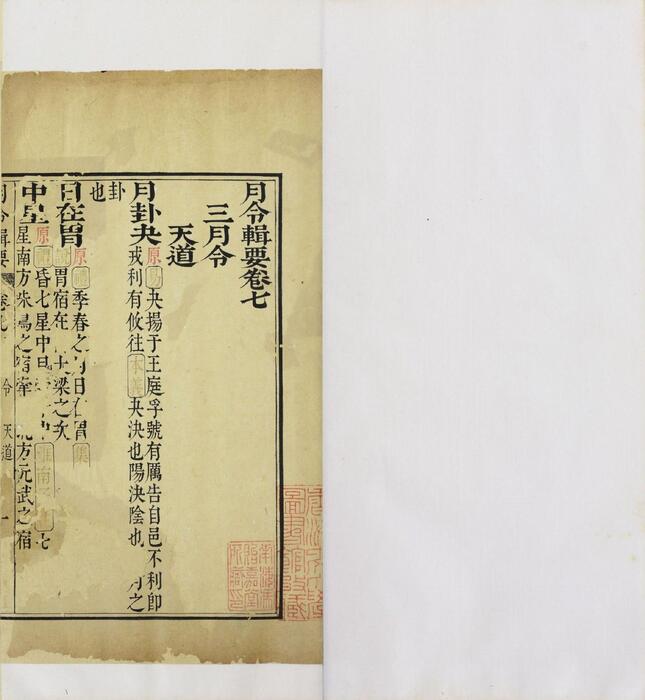 月令輯要卷七
三月令
天道
月卦夬 原 易 夬揚于王庭孚號有厲告自邑不利即
戎利有攸往 本義 夬決也陽決陰也 月之
卦
也
日在胃 原 季春之月日在胃 集
胃宿在 大梁之次
中星 原 昏七星中旦 淮南 七
星南方朱鳥之宿牽 北方元武之宿
月令輯要 卷七 令 天道 一